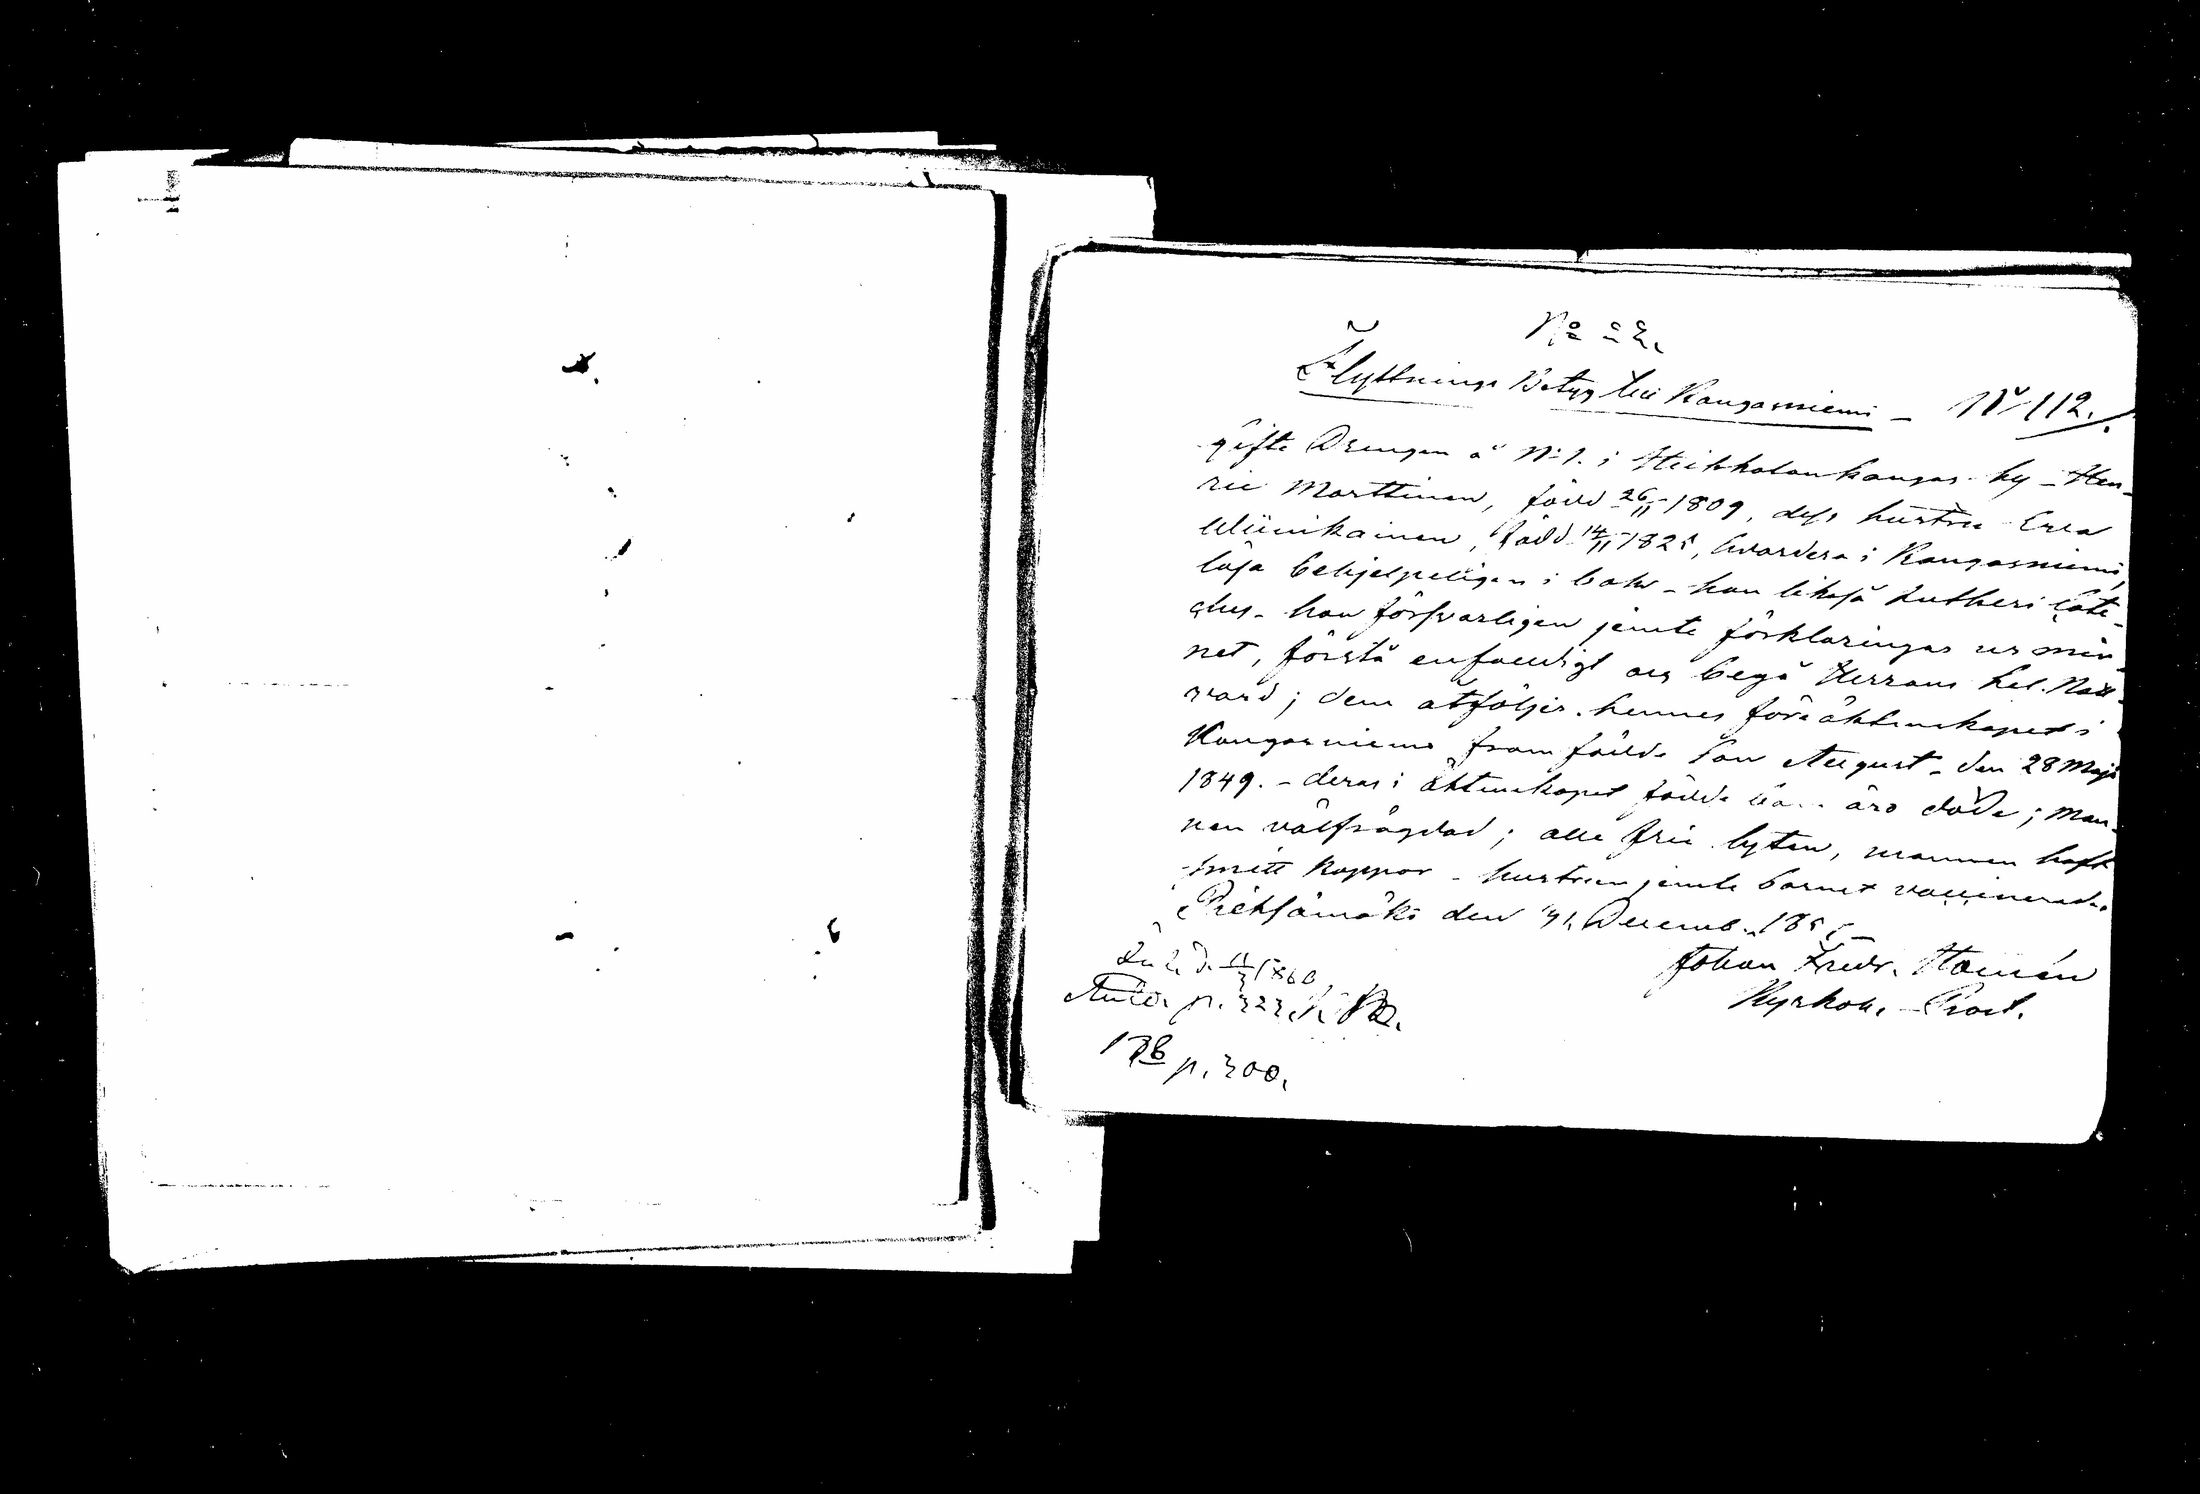 Flyttnings Betyg till Kangasniemi – N° 112.
gifte Drengen å N:1. i Heikkolankangas by – Hen-
ric Marttinen, född 26/11 1809, dess hustru Eva
född 14/11 182, hvardera i Kangasniemi,
läsa behjelpeligen i bok – han likaså Lutheri Cate-
ches – hon försvarligen jemte förklaringar ur min-
net, förstå enfaldigt och begå Herrans hel. Natt-
vard; dem åtföljer hennes före äktenskapet i
Kangasniemi framfödde Son August – den 28 Maji
1849. – deras i äktenskapet födde barn äro döda; Man-
nen välfrägdad; alla fria lyten, mannen haft
smitt koppor – hustrun jemte barnet vaccinerade.
Pieksämäki den 31. Decemb. 185
Johan Fredr.
Kyrkoh. – Prost.
1860
p. 323
p. 300.